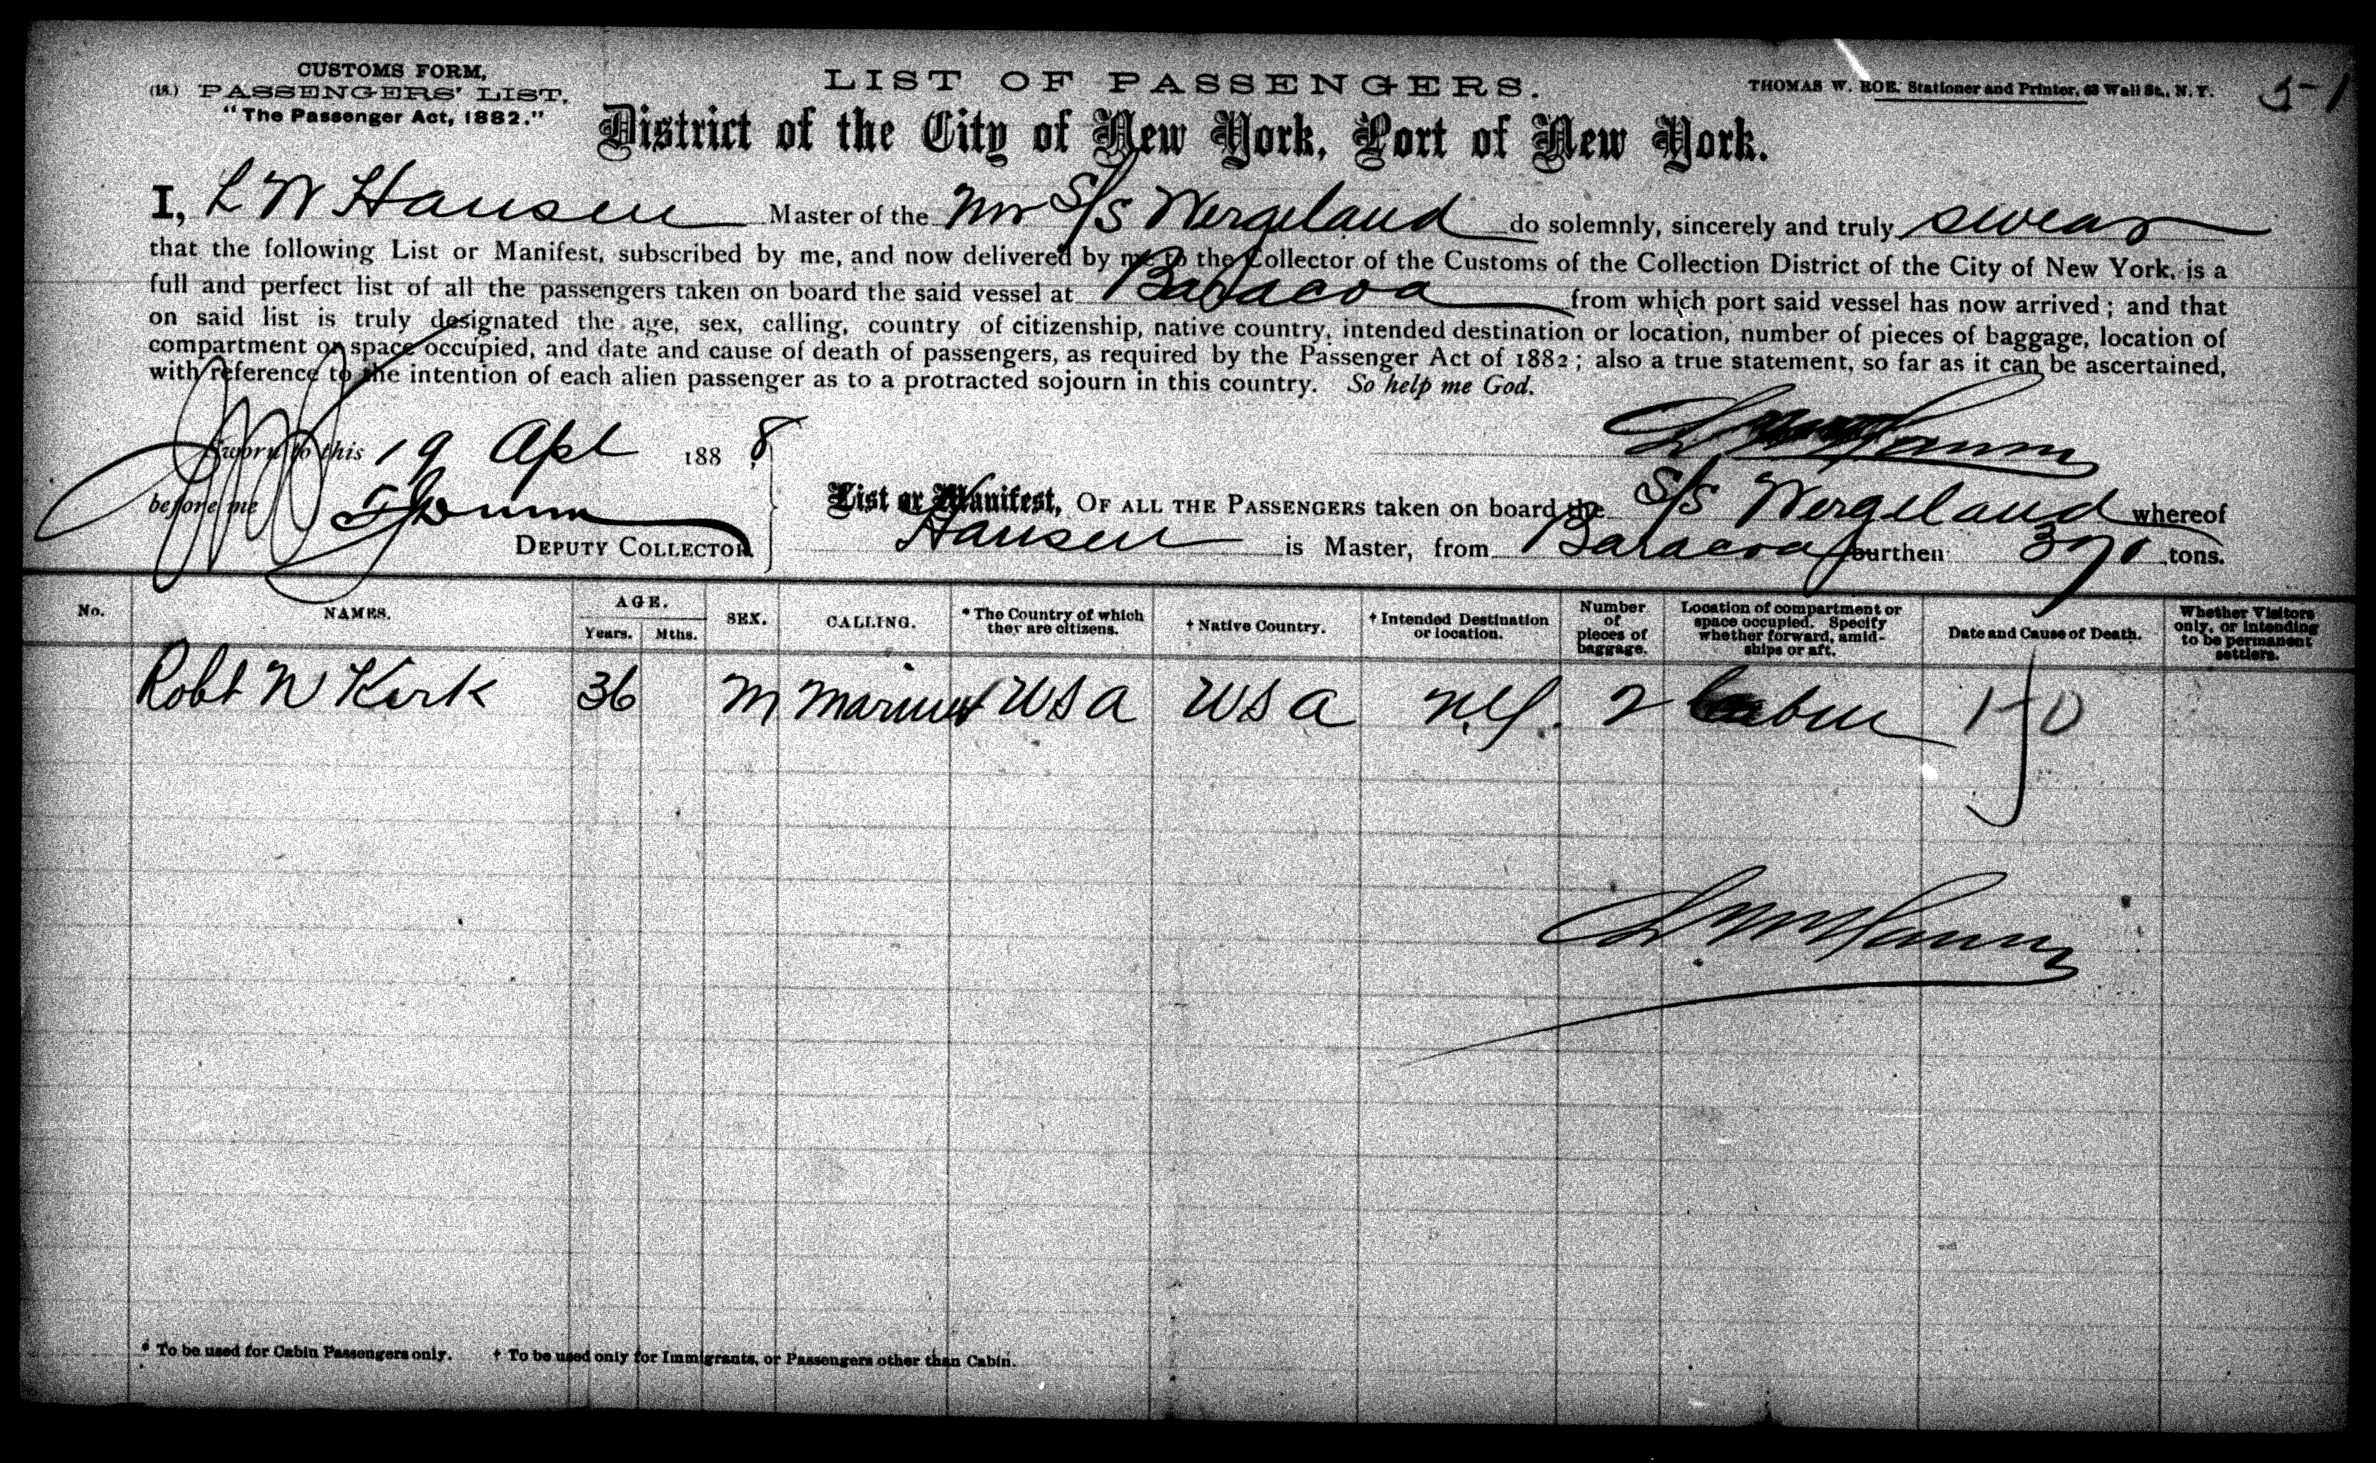 CUSTOMS FORM,
(18.) PASSENGERS' LIST,
"The Passenger Act, 1882."
LIST OF PASSENGERS.
THOMAS W. ROE, Stationer and Printer, 63 Wall St., N. Y.
5-1
District of the City of New York, Port of New York.
I, L W Hansen Master of the Nw S/S Wergeland do solemnly, sincerely and truly swear
that the following List or Manifest, subscribed by me, and now delivered by me to the Collector of the Customs of the Collection District of the City of New York, is a
full and perfect list of all the passengers taken on board the said vessel at Baracoa from which port said vessel has now arrived; and that
on said list is truly designated the age, sex, calling, country of citizenship, native country, intended destination or location, number of pieces of baggage, location of
compartment or space occupied, and date and cause of death of passengers, as required by the Passenger Act of 1882; also a true statement, so far as it can be ascertained,
with reference to the intention of each alien passenger as to a protracted sojourn in this country. So help me God.
Sworn to this 19 Apl 1888
before me
DEPUTY COLLECTOR
List or Manifest, OF ALL THE PASSENGERS taken on board the S/S Wergeland whereof
Hansen is Master, from Baracoa burthen 370 tons.
No.
NAMES.
AGE.
Years. Mths.
SEX.
CALLING.
* The Country of which
they are citizens.
† Native Country.
† Intended Destination
or location.
Number
of
pieces of
baggage.
Location of compartment or
space occupied. Specify
whether forward, amid-
ships or aft.
Date and Cause of Death.
Whether Visitors
only, or intending
to be permanent
settlers.
Robt W Kirk 36 M Mariner USA USA N.Y. 2 Cabin
* To be used for Cabin Passengers only. † To be used only for Immigrants, or Passengers other than Cabin.